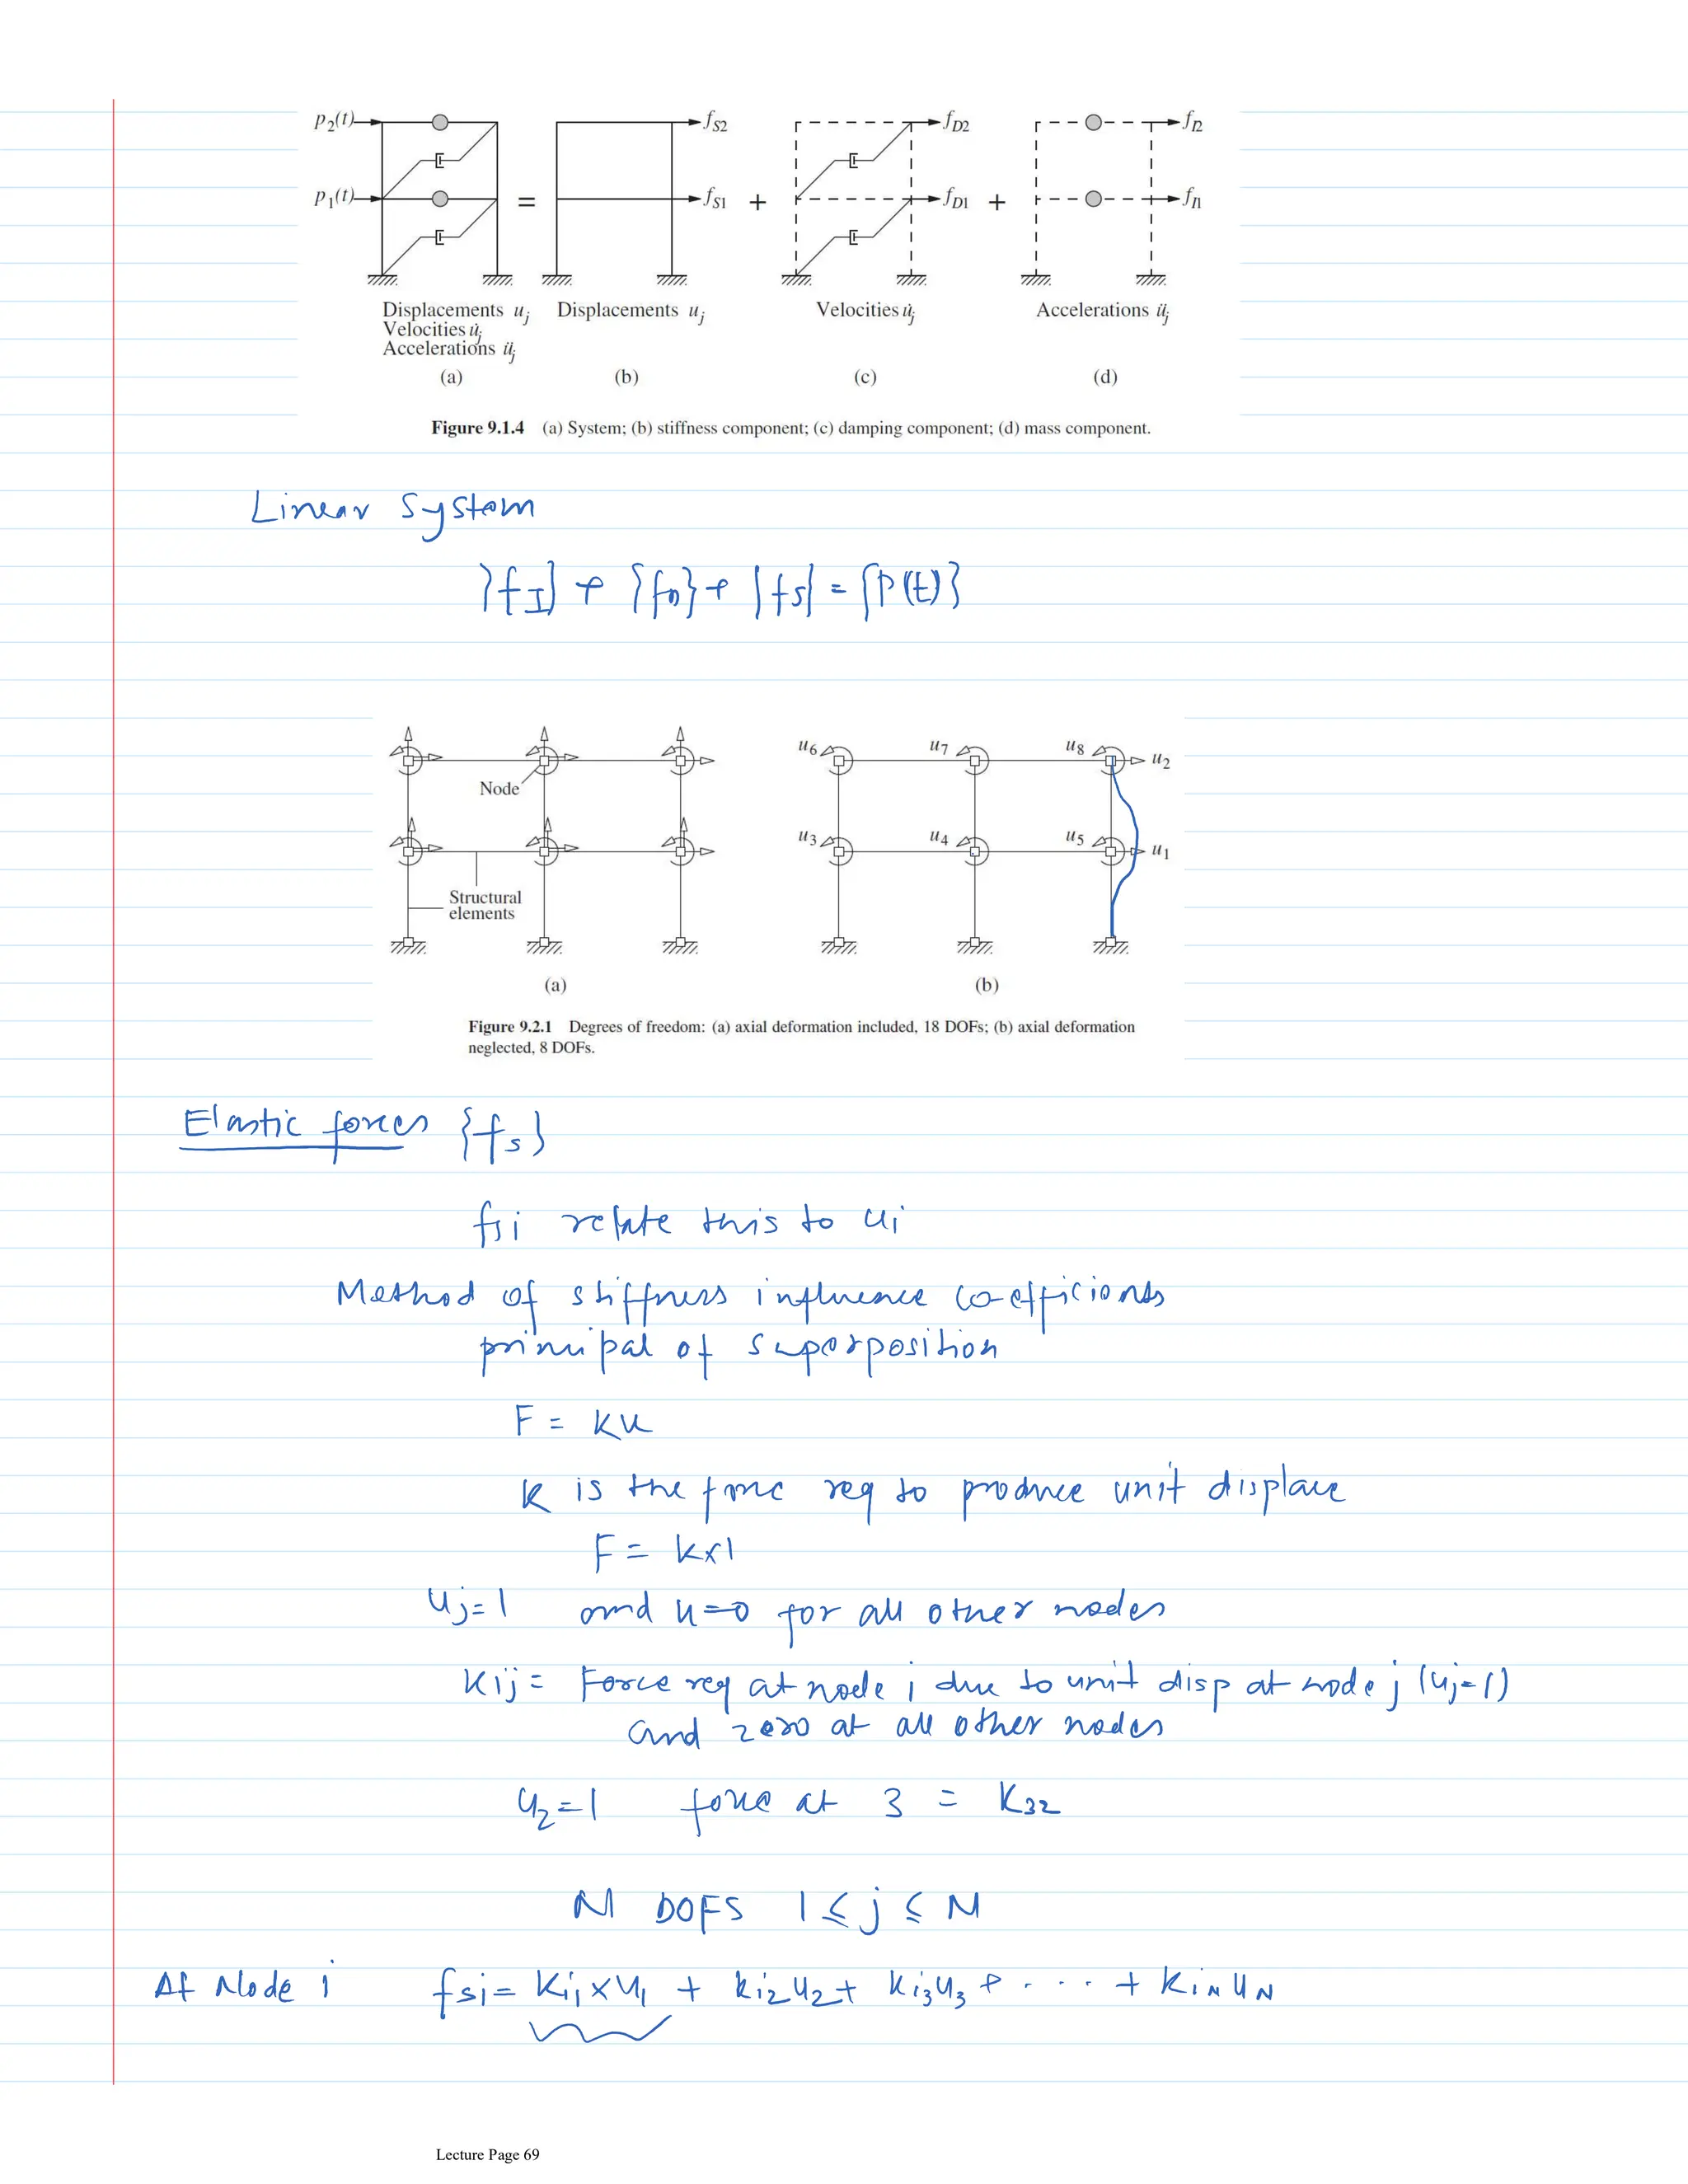 p2(t) fS2 fD2 fI2
p1(t) = fS1 + fD1 + fI1
Displacements uj Displacements uj Velocities u̇j Accelerations üj
Velocities u̇j
Accelerations üj
(a) (b) (c) (d)
Figure 9.1.4 (a) System; (b) stiffness component; (c) damping component; (d) mass component.
Linear System
{fI} + {fD} + {fS} = {P(t)}
u6 u7 u8 u2
Node
u3 u4 u5 u1
Structural
elements
(a) (b)
Figure 9.2.1 Degrees of freedom: (a) axial deformation included, 18 DOFs; (b) axial deformation
neglected, 8 DOFs.
Elastic forces {fs}
fsi relate this to ui
Method of stiffness influence co-efficients
principal of superposition
F = ku
k is the force req to produce unit displace
F = k×1
uj=1 and u=0 for all other nodes
Kij = Force req at node i due to unit disp at node j (uj=1)
and zero at all other nodes
u2=1 force at 3 = K32
N DOFS 1 ≤ j ≤ N
At Node i fsi = Ki1×u1 + ki2u2 + ki3u3 + .... + kiNuN
Lecture Page 69